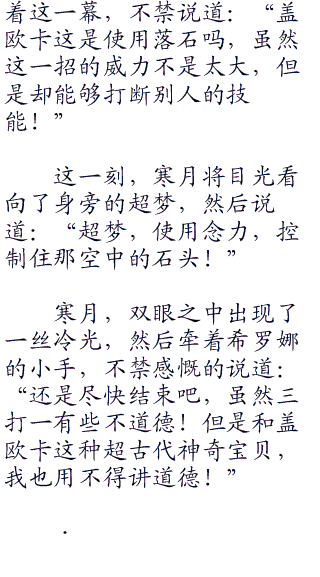 着这一幕，不禁说道：“盖
欧卡这是使用落石吗，虽然
这一招的威力不是太大，但
是却能够打断别人的技
能！”
这一刻，寒月将目光看
向了身旁的超梦，然后说
道：“超梦，使用念力，控
制住那空中的石头！”
寒月，双眼之中出现了
一丝冷光，然后牵着希罗娜
的小手，不禁感慨的说道：
“还是尽快结束吧，虽然三
打一有些不道德！但是和盖
欧卡这种超古代神奇宝贝，
我也用不得讲道德！”
.